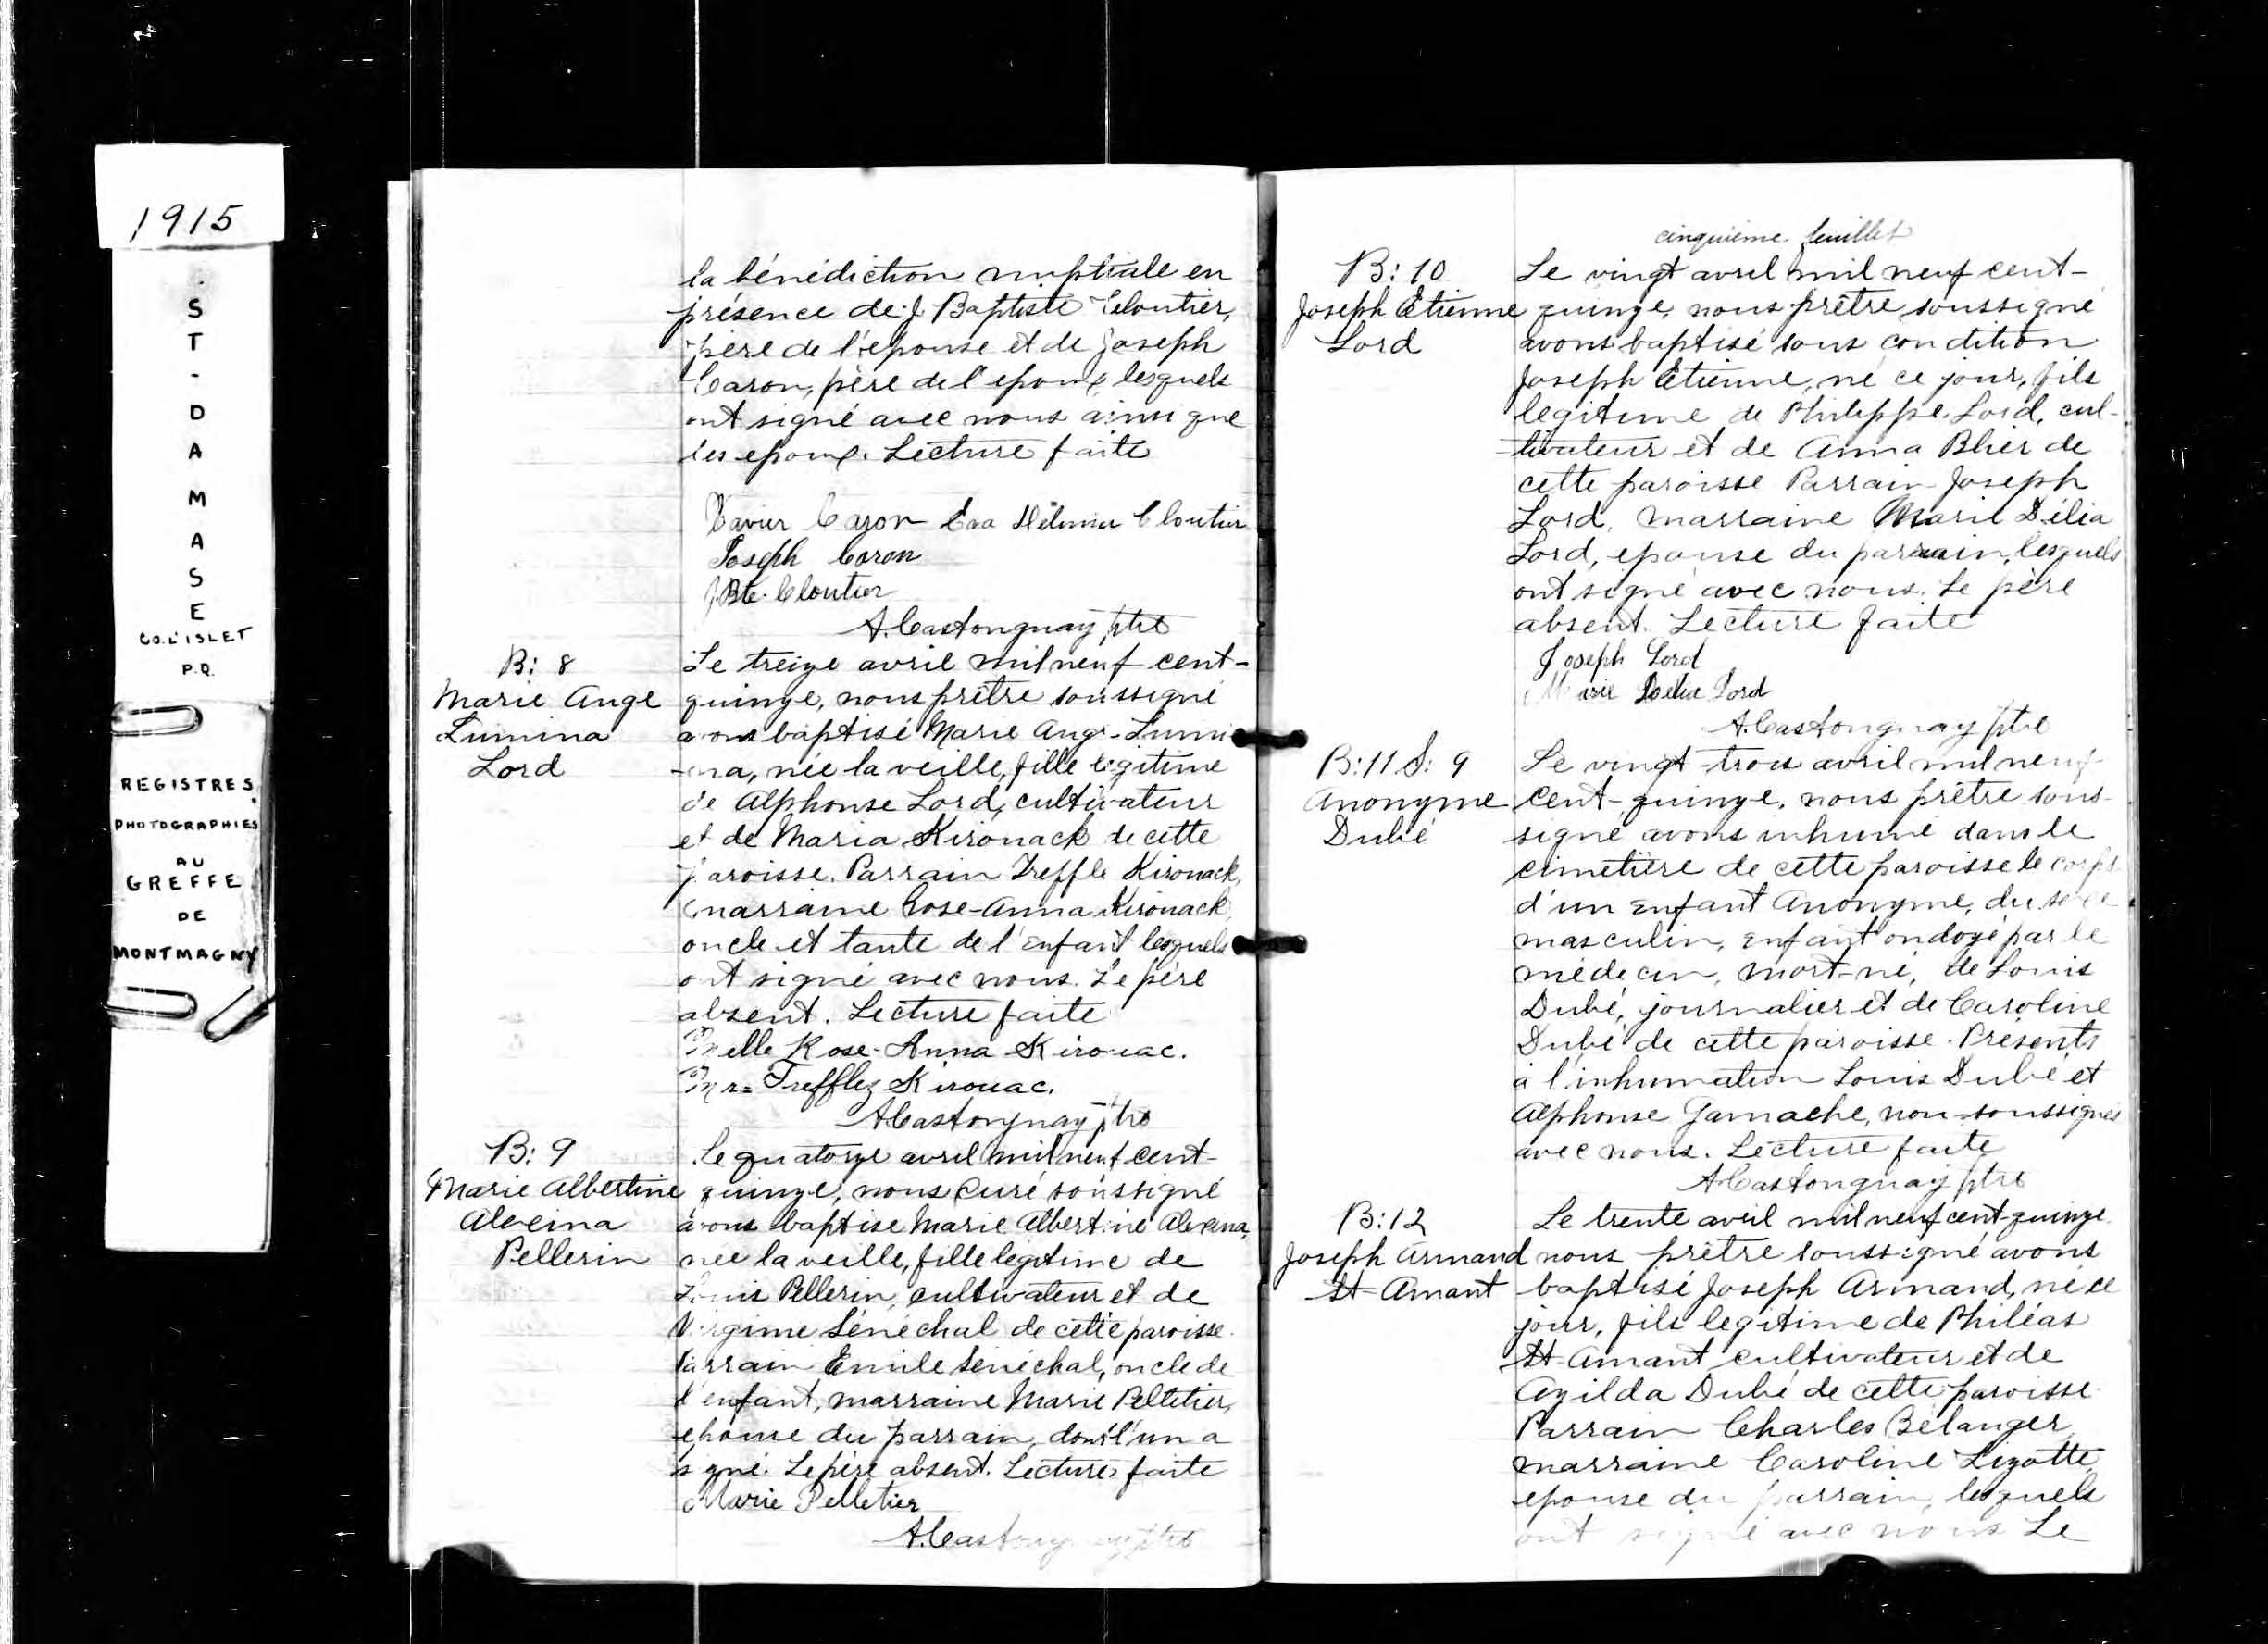 1915
ST-DAMASE
CO. L'ISLET
P.Q.
REGISTRES
PHOTOGRAPHIES
AU
GREFFE
DE
MONTMAGNY
la bénédiction nuptiale en
présence de J. Baptiste Cloutier,
père de l'épouse et de Joseph
Caron, père de l'époux, lesquels
ont signé avec nous ainsi que
les époux. Lecture faite
Xavier Caron Eva Cloutier
Joseph Caron
J. Bte. Cloutier
A. Castonguay ptre
B: 8
Marie Ange
Lumina
Lord
Le treize avril mil neuf cent-
quinze, nous prêtre soussigné
avons baptisé Marie Ange-Lumi-
-na, née la veille, fille légitime
de Alphonse Lord, cultivateur
et de Maria Kirouack de cette
paroisse. Parrain Treffle Kirouack,
marraine Rose-Anna Kirouack,
oncle et tante de l'enfant, lesquels
ont signé avec nous. Le père
absent. Lecture faite
Melle Rose-Anna Kirouac.
Mr= Trefflez Kirouac.
A Castonguay ptre
B: 9
Marie Albertine
Alveina
Pellerin
Le quatorze avril mil neuf cent-
quinze, nous curé soussigné
avons baptise Marie Albertine Alveina,
née la veille, fille legitime de
Louis Pellerin, cultivateur et de
Virginie Sénéchal de cette paroisse.
Parrain Émile Sénéchal, oncle de
l'enfant, marraine Marie Pelletier,
epouse du parrain, dont l'un a
signé. Le père absent. Lecture faite
Marie Pelletier
A. Castonguay ptre
cinquième feuillet
B: 10
Joseph Etienne
Lord
Le vingt avril mil neuf cent-
quinze, nous prêtre soussigné
avons baptisé sous condition
Joseph Etienne, né ce jour, fils
legitime de Philippe Lord, cul-
-tivateur et de Anna Blier de
cette paroisse Parrain Joseph
Lord, marraine Marie Délia
Lord, epouse du parrain, lesquels
ont signé avec nous. Le père
absent. Lecture faite
Joseph Lord
Marie Delia Lord
A. Castonguay ptre
B: 11 S: 9
Anonyme
Dubé
Le vingt-trois avril mil neuf
cent-quinze, nous prêtre sous-
signé avons inhumé dans le
cimetière de cette paroisse le corps
d'un enfant Anonyme, du sexe
masculin, enfant ondoyé par le
médecin, mort-né, de Louis
Dubé, journalier et de Caroline
Dubé de cette paroisse. Présents
à l'inhumation Louis Dubé et
Alphonse Gamache, non-soussignés
avec nous. Lecture faite
A Castonguay ptre
B: 12
Joseph Armand
St-Amant
Le trente avril mil neuf cent-quinze
nous prêtre soussigné avons
baptisé Joseph Armand, né ce
jour, fils legitime de Philéas
St-Amant cultivateur et de
Azilda Dubé de cette paroisse
Parrain Charles Bélanger,
marraine Caroline Lizotte,
epouse du parrain, lesquels
ont signé avec nous Le